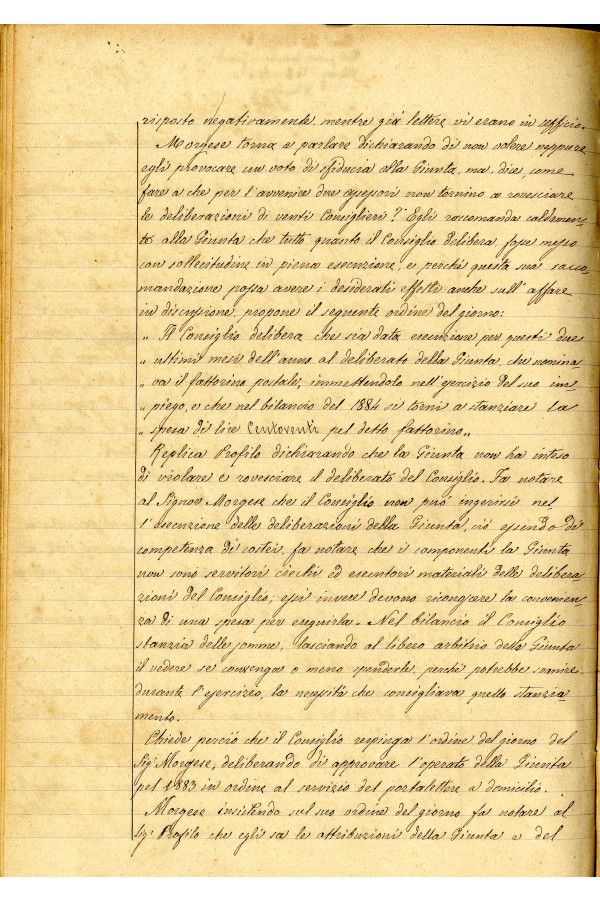 risposto negativamente, mentre già lettere vi erano in ufficio.
Morgese torna a parlare dichiarando di non volere neppure
egli provocare un voto di sfiducia alla Giunta, ma, dice, come
fare a che per l'avvenire due assessori non tornino a rovesciare
le deliberazioni di venti Consiglieri? Egli raccomanda caldamen-
te alla Giunta che tutto quanto il Consiglio delibera fosse messo
con sollecitudine in piena esecuzione, e perché questa sua racco-
mandazione possa avere i desiderati effetti anche sull'affare
in discussione, propone il seguente ordine del giorno:
„ Il Consiglio delibera che sia data esecuzione per questi due
„ ultimi mesi dell'anno al deliberato della Giunta, che nomina-
„ va il fattorino postale, immettendolo nell'esercizio del suo im-
„ piego, e che nel bilancio del 1884 si torni a stanziare la
„ spesa di lire Centoventi pel detto fattorino„
Replica Profilo dichiarando che la Giunta non ha inteso
di violare e rovesciare il deliberato del Consiglio. Fa notare
al Signor Morgese che il Consiglio non può ingerirsi nel-
l'esecuzione delle deliberazioni della Giunta, ciò essendo di
competenza di costei, fa notare che i componenti la Giunta
non sono servitori ciechi ed esecutori materiali delle delibera-
zioni del Consiglio; essi invece devono riconoscere la convenien-
za di una spesa per eseguirla. Nel bilancio il Consiglio
stanzia delle somme, lasciando al libero arbitrio della Giunta
il vedere se convenga o meno spenderle, perché potrebbe svanire,
durante l'esercizio, la necessità che consigliava quello stanzia-
mento.
Chiede perciò che il Consiglio respinga l'ordine del giorno del
Sig.r Morgese, deliberando di approvare l'operato della Giunta
pel 1883 in ordine al servizio del portalettere a domicilio.
Morgese insistendo sul suo ordine del giorno fa notare al
Sig.r Profilo che egli sa le attribuzioni della Giunta e del